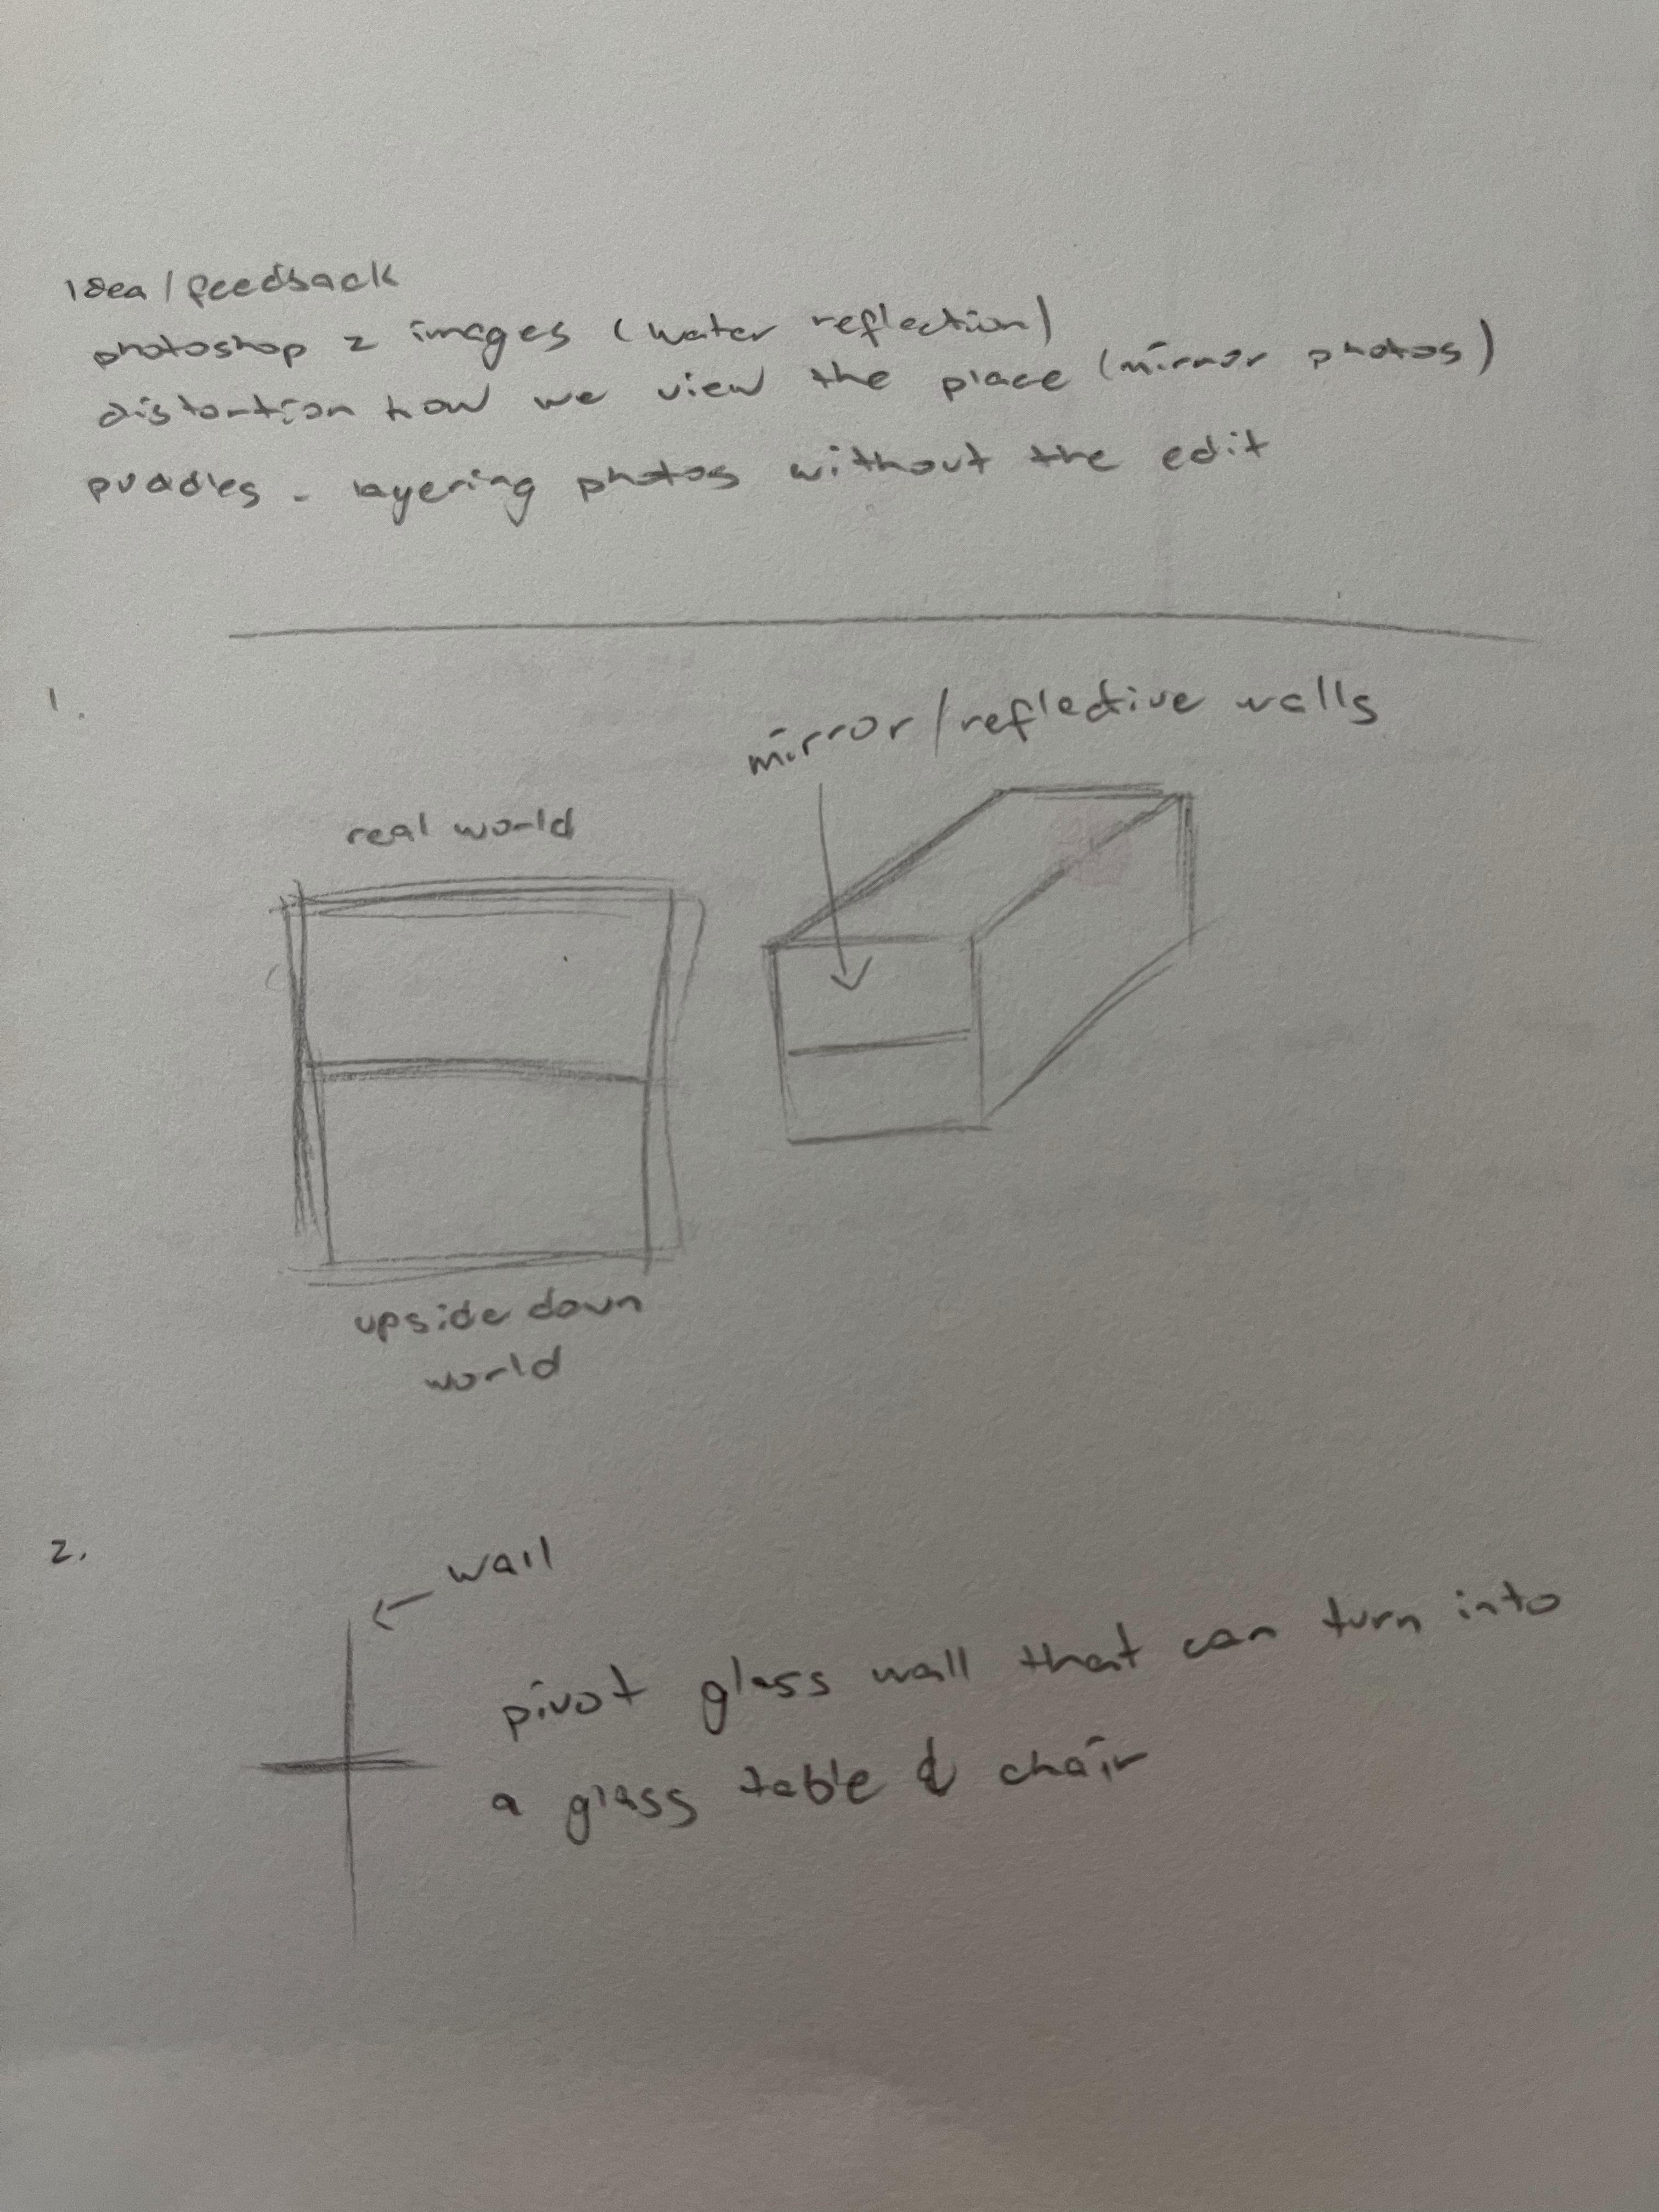 idea/feedback
photoshop 2 images (water reflection)
distortion how we view the place (mirror photos)
puddles - layering photos without the edit
1.
mirror/reflective walls
real world
upside down
world
2.
wall
pivot glass wall that can turn into
a glass table & chair